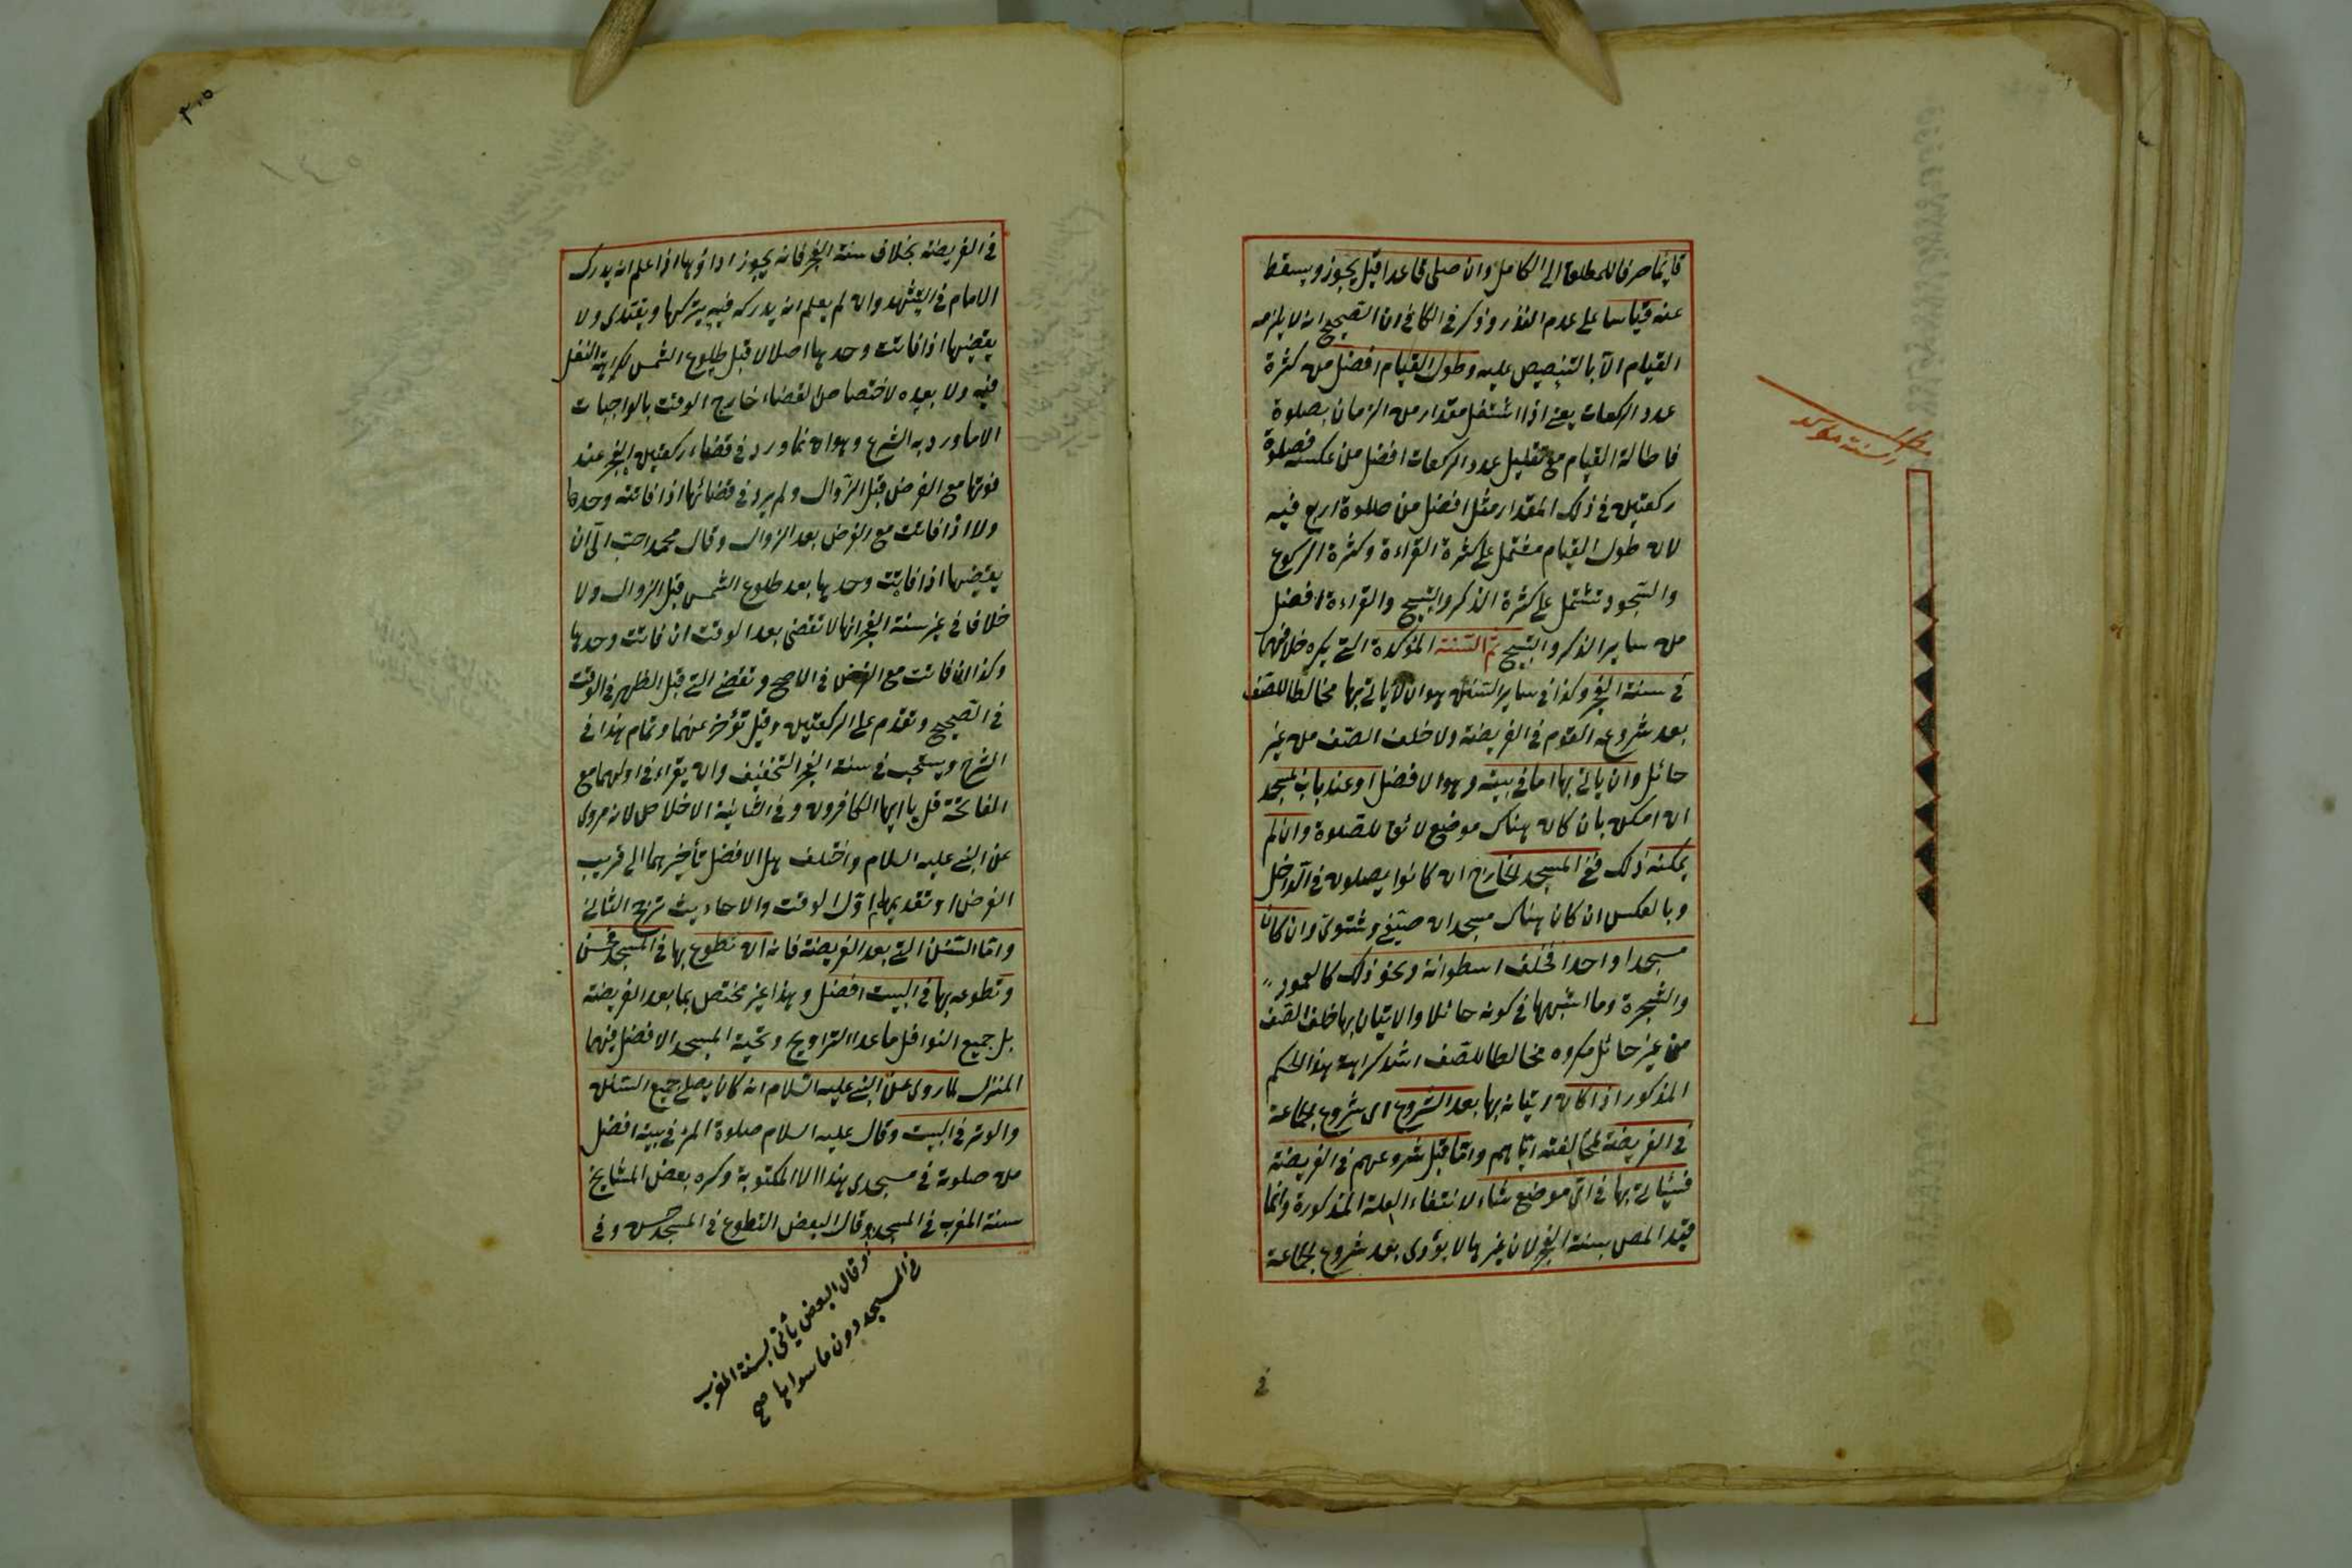 قائما صرفا للمطلق الى الكامل وان صلى قاعدا قيل يجوز ويسقط
عنه قياسا على عدم النذر وذكر في الكافي ان الصحيح انه لا يلزمه
القيام الا بالتنصيص عليه وطول القيام افضل من كثرة
عدد الركعات يعني اذا اشتغل مقدار من الزمان بصلوة
فاطالة القيام مع تقليل عدد الركعات افضل من عكسه فصلوة
ركعتين في ذلك المقدار مثل افضل من صلوة اربع فيه
لان طول القيام مشتمل على كثرة القراءة وكثرة الركوع
والسجود تشتمل على كثرة الذكر والتسبيح والقراءة افضل
من سائر الذكر والتسبيح ثم السنة المؤكدة التي يكره خلافها
في سنة الفجر وكذا في سائر السنن هو ان لا ياتي بها مخالطا للصف
بعد شروع القوم في الفريضة ولا خلف الصف من غير
حائل وان ياتي بها اما في بيته وهو الافضل او عند باب المسجد
ان امكن بان كان هناك موضع لائق للصلوة وان لم
يمكنه ذلك ففي المسجد الخارج ان كانوا يصلون في الداخل
وبالعكس ان كان هناك مسجدان صيفي وشتوي وان كان
مسجدا واحدا فخلف اسطوانة ونحو ذلك كالعمود
والشجرة وما اشبهها في كونه حائلا والاتيان بها خلف الصف
من غير حائل مكروه مخالطا للصف اشد كراهة هذا الحكم
المذكور اذا كان اتيانه بها بعد الشروع اى شروع الجماعة
في الفريضة لمخالفته اياهم واما قبل شروعهم في الفريضة
فيأتي بها في اى موضع شاء لانتفاء العلة المذكورة وانما
قيد المص بسنة الفجر لان غيرها لا يؤدى بعد شروع الجماعة
في
السنة مؤكد
٣٠٥
في الفريضة بخلاف سنة الفجر فانه يجوز اداؤها اذا علم انه يدرك
الامام في التشهد وان لم يعلم انه يدركه فيه يتركها ويقتدى ولا
يقضيها اذا فاتت وحدها اصلا لا قبل طلوع الشمس لكراهة النفل
فيه ولا بعده لاختصاص القضاء خارج الوقت بالواجبات
الا ما ورد به الشرع وهو انما ورد في قضاء ركعتين الفجر عند
فوتها مع الفرض قبل الزوال ولم يرد في قضائها اذا فاتته وحدها
ولا اذا فاتت مع الفرض بعد الزوال وقال محمد احب الي ان
يقضيها اذا فاتت وحدها بعد طلوع الشمس قبل الزوال ولا
خلاف في غير سنة الفجر انها لا تقضى بعد الوقت ان فاتت وحدها
وكذا ان فاتت مع الفرض في الاصح وتقضى التي قبل الظهر في الوقت
في الصحيح وتقدم على الركعتين وقيل تؤخر عنهما وتمام هذا في
الشرح ويستحب في سنة الفجر التخفيف وان يقراء في اولهما مع
الفاتحة قل يا ايها الكافرون وفي الثانية الاخلاص لانه مروى
عن النبي عليه السلام واختلف هل الافضل تأخيرهما الى قريب
الفرض او تقديمها اول الوقت والاحاديث ترجح الثاني
واما السنن التي بعد الفريضة فانه ان تطوع بها في المسجد فحسن
وتطوعه بها في البيت افضل وهذا غير مختص بما بعد الفريضة
بل جميع النوافل ما عدا التراويح وتحية المسجد الافضل فيها
المنزل لما روى عن النبي عليه السلام انه كان يصلى جميع السنن
والوتر في البيت وقال عليه السلام صلوة المرء في بيته افضل
من صلوته في مسجدى هذا الا المكتوبة وكره بعض المشايخ
سنة المغرب في المسجد وقال البعض التطوع في المسجد حسن وفي
وقال البعض يأتى بسنة المغرب
في المسجد دون ما سواها صح